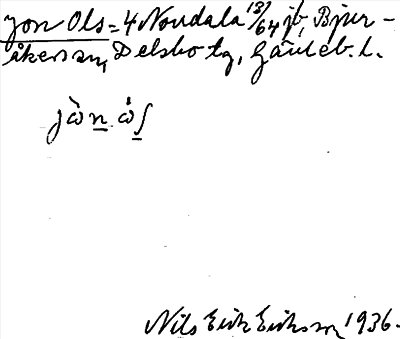 Jon Ols=4 Nordala 13/64 jb, Bjur-
åkers sn, Delsbo tg, Gävleb. l.
jòn ós
Nils Erik Eriksson 1936.